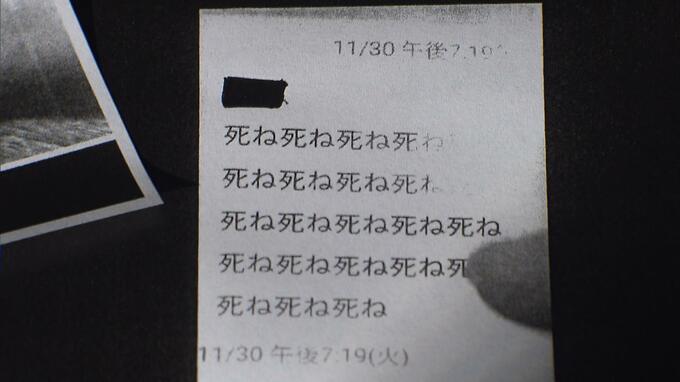 11/30 午後7:19
死ね死ね死ね死ね
死ね死ね死ね死ね
死ね死ね死ね死ね死ね
死ね死ね死ね死ね死
死ね死ね死ね
11/30 午後7:19(火)